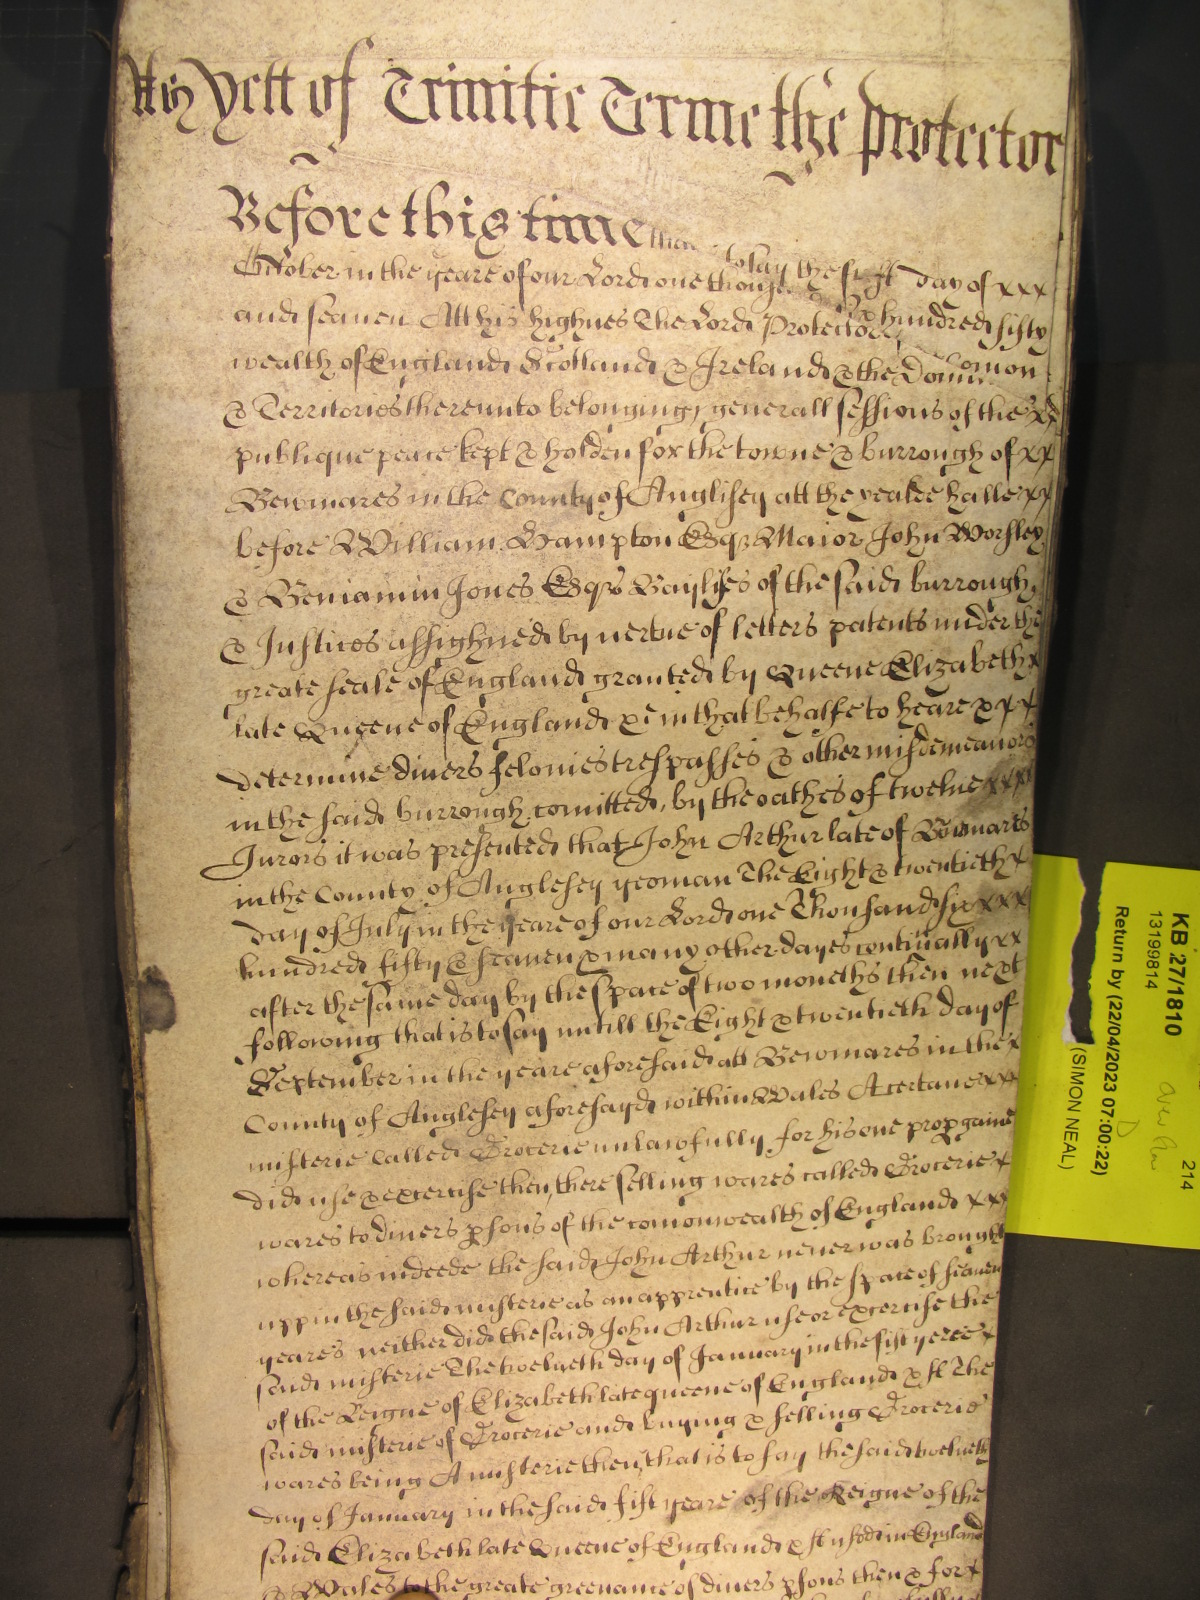 Yett of Trinitie Terme the Protector
Before this time that to say the first day of xxx
October in the yeare of our Lord one thousand six hundred fifty
and seaven Att his highnes The Lord Protector Comon
wealth of England Scotland & Ireland & the Domin
& Territories thereunto belonging generall sessions of the xx
publique peace kept & holden for the towne & burrough of xx
Bewmares in the County of Anglisey att the yealde halle xx
before William Hampton Esqr Maior John Worsley
& Beniamin Jones Esqrs Baylifes of the said burrough
& Justices assighned by vertue of letters patents under the
greate seale of England granted by Queene Elizabeth x
late Queene of England &c in that behalfe to heare & xx
determine divers felonies trespasses & other misdemeanors
in the said burrough comitted, by the oathes of twelve xxx
Jurors it was presented that John Arthur late of Bewmares
in the County of Anglesey yeoman The Eight & twentieth x
day of July in the yeare of our Lord one Thousand six xxx
hundred fifty & seaven & many other dayes continually xx
after the same day by the space of two moneths then next
following that is to say untill the Eight & twentieth day of
September in the yeare aforesaid att Bewmares in the x
County of Anglesey aforesayd within Wales A certane xxx
misterie called Grocerie unlawfully for his one propp gaine
did use & excercise then, there selling wares called Grocerie x
wares to divers psons of the comonwealth of England xxx
whereas indeede the said John Arthur never was brought
upp in the said misterie as an apprentice by the space of seaven
yeares neither did the said John Arthur use or excercise the
said misterie The twelveth day of January in the fift yeree x
of the Reigne of Elizabeth late queene of England & st The
said misterie of Grocerie and buying & selling Grocerie
wares being A misterie then, that is to say the said twelveth
day of January in the said fift yeare of the Reigne of the
said Elizabeth late Queene of England & st used in England
& Wales to the greate greevance of divers psons then & for x
KB 27/1810
13199814
214
Return by (22/04/2023 07:00:22)
(SIMON NEAL)